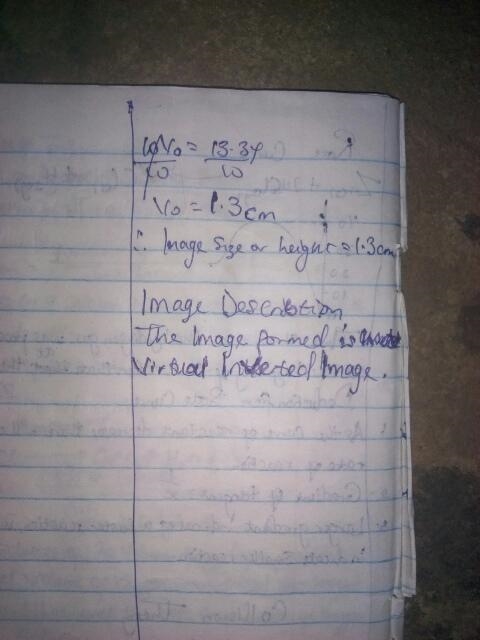 10V₀ = 13.34
10 10
V₀ = 1.3cm
∴ Image Size or height = 1.3cm
Image Description
The Image formed is
Virtual Inverted Image.